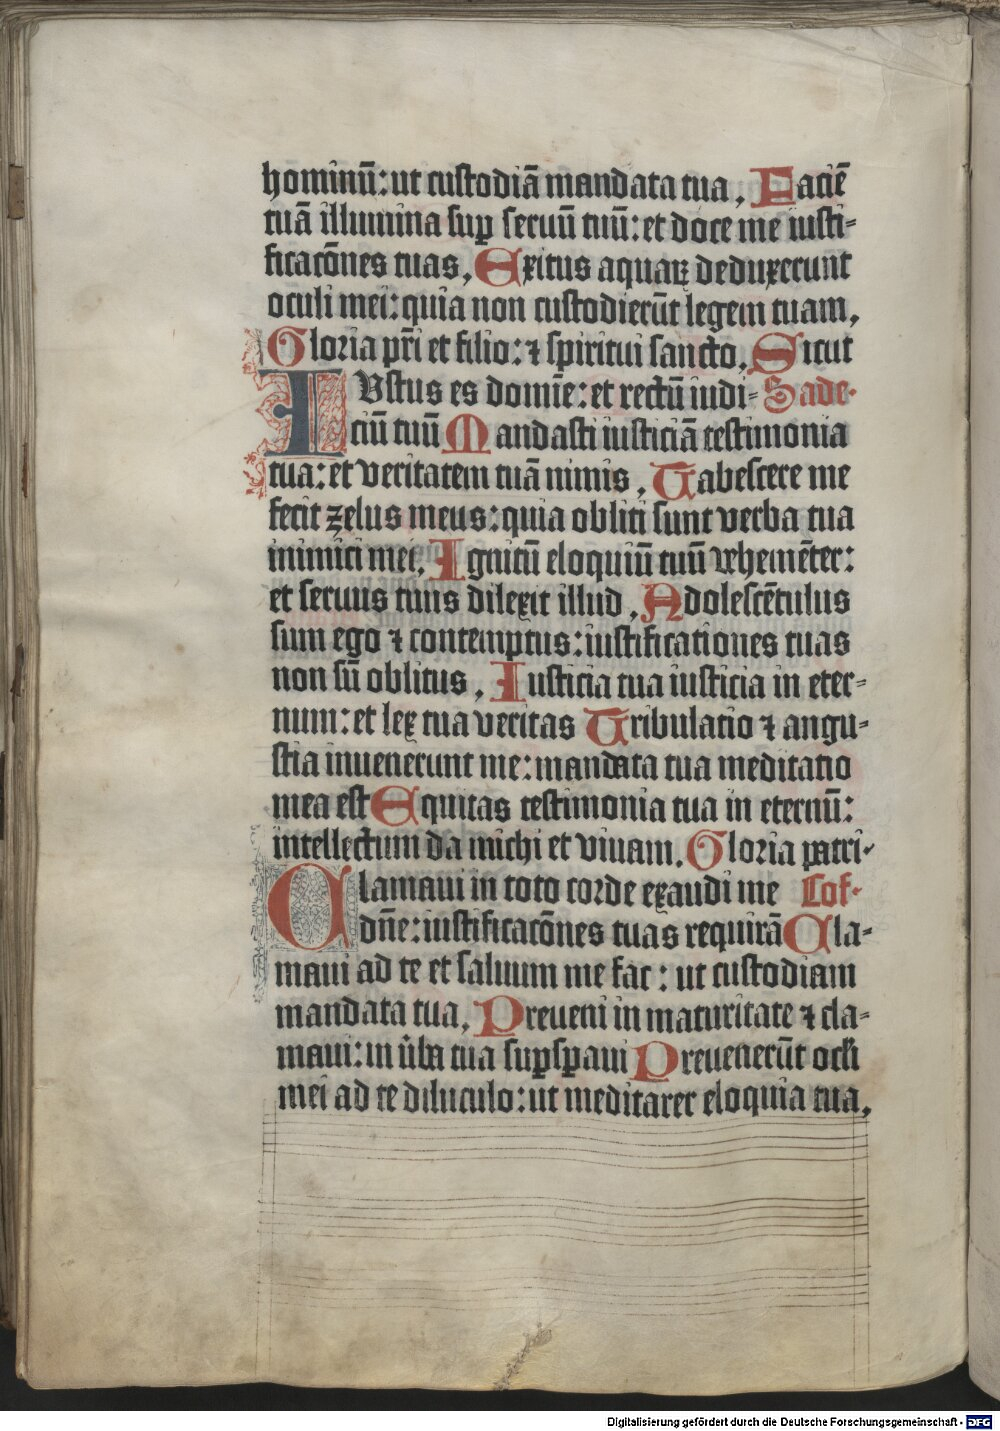 hominū: ut custodiā mandata tua, Faciē
tuā illumina sup seruū tuū: et doce me iusti-
ficacōnes tuas, Exitus aquaꝝ deduxerunt
oculi mei: quia non custodierūt legem tuam,
Gloria pr̄i et filio: ⁊ spiritui sancto, Sicut
IUstus es domīe: et rectū iudi- Sade·
ciū tuū Mandasti iusticiā testimonia
tua: et veritatem tuā nimis, Tabescere me
fecit zelus meus: quia obliti sunt verba tua
inimici mei, Ignitū eloquiū tuū vehemēter:
et seruus tuus dilexit illud, Adolescētulus
sum ego ⁊ contemptus: iustificationes tuas
non sū oblitus, Iusticia tua iusticia in eter-
num: et lex tua veritas Tribulatio ⁊ angu-
stia inuenerunt me: mandata tua meditatio
mea est Equitas testimonia tua in eternū:
intellectum da michi et viuam, Gloria patri·
Clamaui in toto corde exaudi me Cof·
dn̄e: iustificacōnes tuas requirā Cla-
maui ad te et saluum me fac: ut custodiam
mandata tua, Preueni in maturitate ⁊ cla-
maui: in v̄ba tua supsꝑaui Preuenerūt ocli
mei ad te diluculo: ut meditarer eloquia tua,
Digitalisierung gefördert durch die Deutsche Forschungsgemeinschaft - DFG